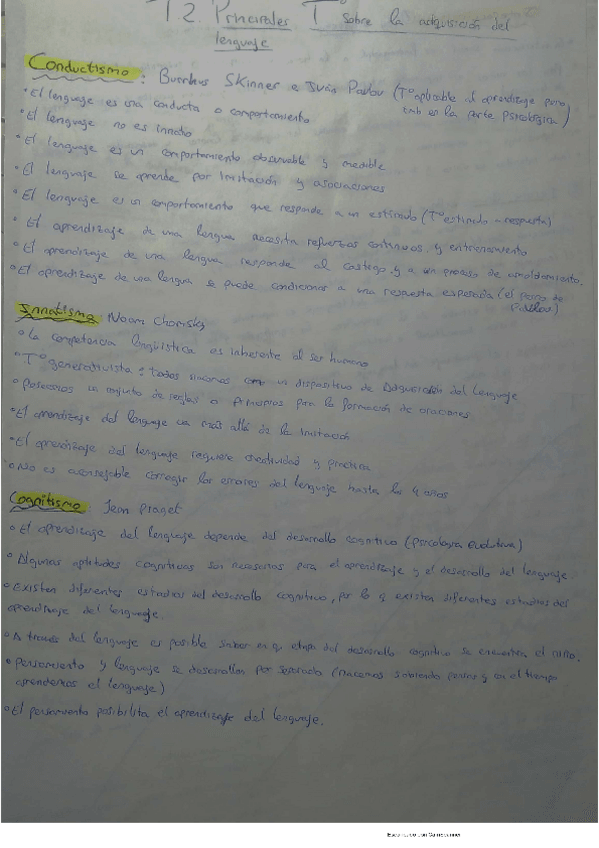 T2. Principales Tº sobre la adquisición del
lenguaje
Conductismo: Burrhus Skinner e Iván Pavlov (Tº aplicable al aprendizaje pero
tmb es la parte psicológica)
• El lenguaje es una conducta o comportamiento
• El lenguaje no es innato
• El lenguaje es un comportamiento observable y medible
• El lenguaje se aprende por imitación y asociaciones
• El lenguaje es un comportamiento que responde a un estímulo (Tº estímulo - respuesta)
• El aprendizaje de una lengua necesita refuerzos continuos y entrenamiento
• El aprendizaje de una lengua responde al castigo y a un proceso de amoldamiento.
• El aprendizaje de una lengua se puede condicionar a una respuesta esperada (el perro de
Pavlov)
Innatismo: Noam Chomsky
• La competencia lingüística es inherente al ser humano
• Tº generativista: todos nacemos con un dispositivo de Adquisición del Lenguaje
• Poseemos un conjunto de reglas o Principios para la formación de oraciones
• El aprendizaje del lenguaje va más allá de la imitación
• El aprendizaje del lenguaje requiere creatividad y práctica
• No es aconsejable corregir los errores del lenguaje hasta los 4 años
Cognitismo: Jean Piaget
• El aprendizaje del lenguaje depende del desarrollo cognitivo (psicología evolutiva)
• Algunas aptitudes cognitivas son necesarias para el aprendizaje y el desarrollo del lenguaje.
• Existen diferentes estadios del desarrollo cognitivo, por lo q existen diferentes estadios del
aprendizaje del lenguaje.
• A través del lenguaje es posible saber en q etapa del desarrollo cognitivo se encuentra el niño.
• Pensamiento y lenguaje se desarrollan por separado (nacemos sabiendo pensar y con el tiempo
aprendemos el lenguaje)
• El pensamiento posibilita el aprendizaje del lenguaje.
Escaneado con CamScanner